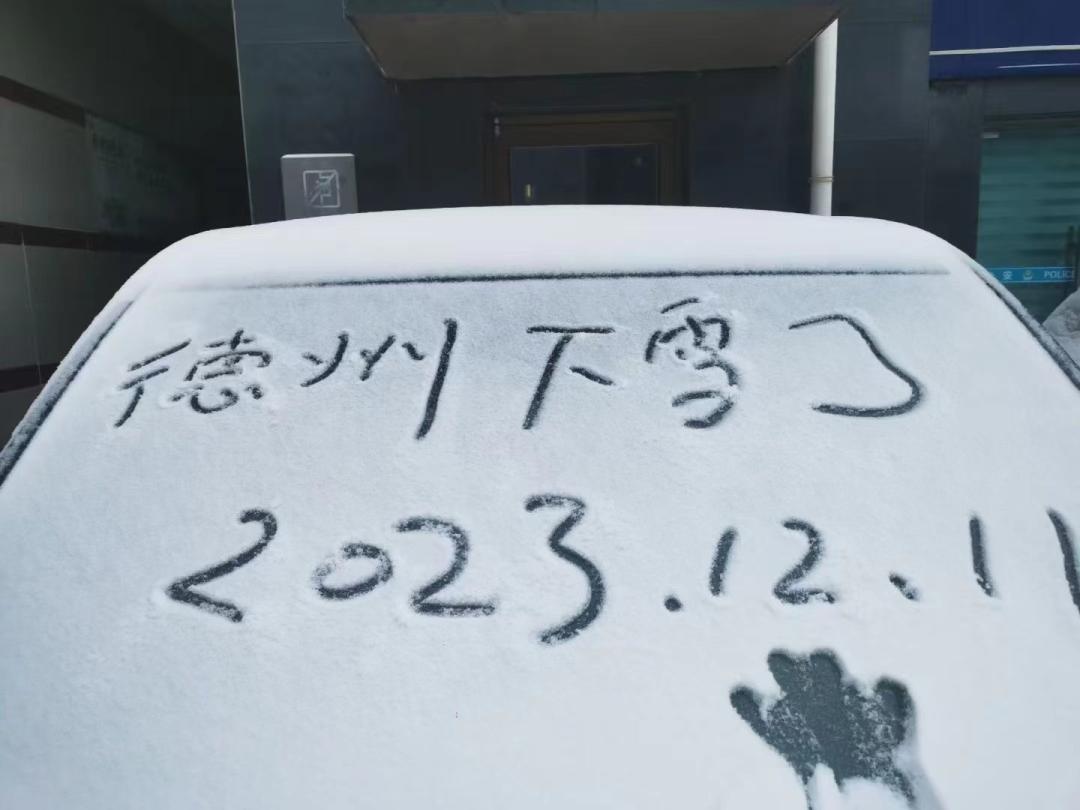 德州下雪了
2023.12.11
安 POLICE